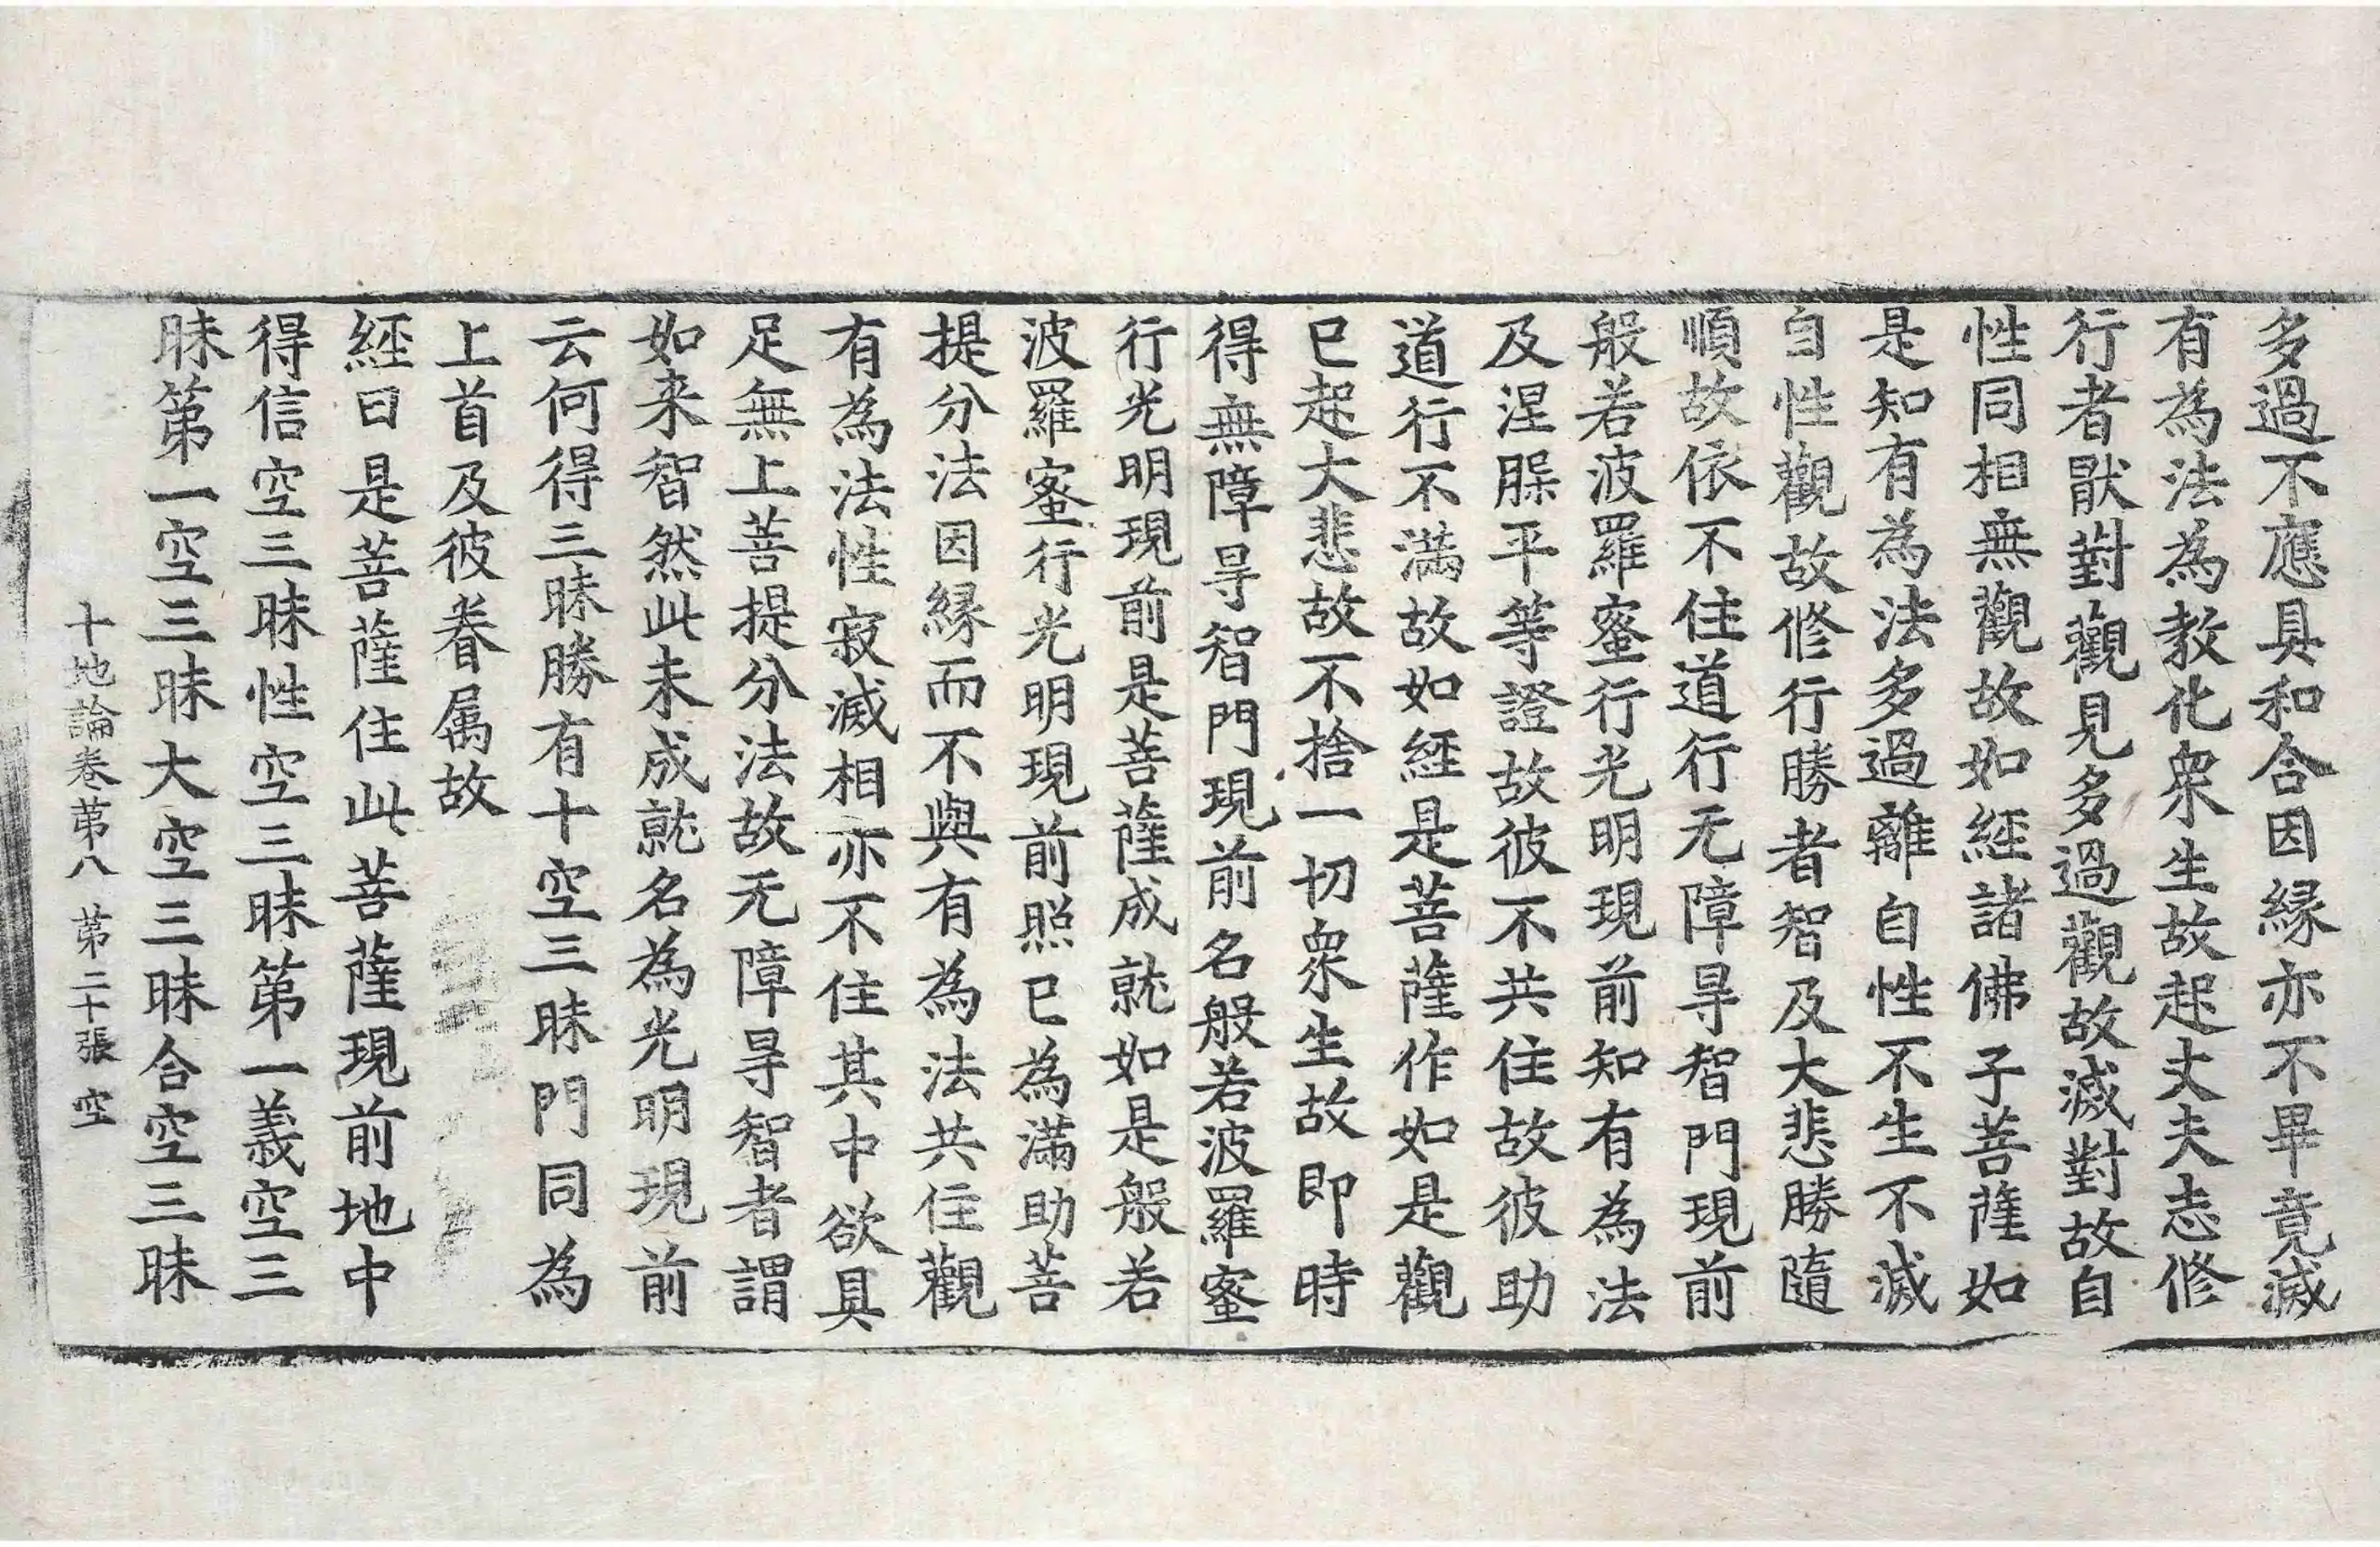 多過不應具和合因縁亦不畢竟滅
有為法為教化衆生故起丈夫志修
行者猒對觀見多過觀故滅對故自
性同相無觀故如經諸佛子菩薩如
是知有為法多過離自性不生不滅
自性觀故修行勝者智及大悲勝隨
順故依不住道行无障㝵智門現前
般若波羅蜜行光明現前知有為法
及涅槃平等證故彼不共住故彼助
道行不滿故如經是菩薩作如是觀
已起大悲故不捨一切衆生故即時
得無障㝵智門現前名般若波羅蜜
行光明現前是菩薩成就如是般若
波羅蜜行光明現前照已為滿助菩
提分法因縁而不與有為法共住觀
有為法性寂滅相亦不住其中欲具
足無上菩提分法故无障㝵智者謂
如来智然此未成就名為光明現前
云何得三昧勝有十空三昧門同為
上首及彼眷属故
經曰是菩薩住此菩薩現前地中
得信空三昧性空三昧第一義空三
昧第一空三昧大空三昧合空三昧
十地論卷苐八 苐二十張 空